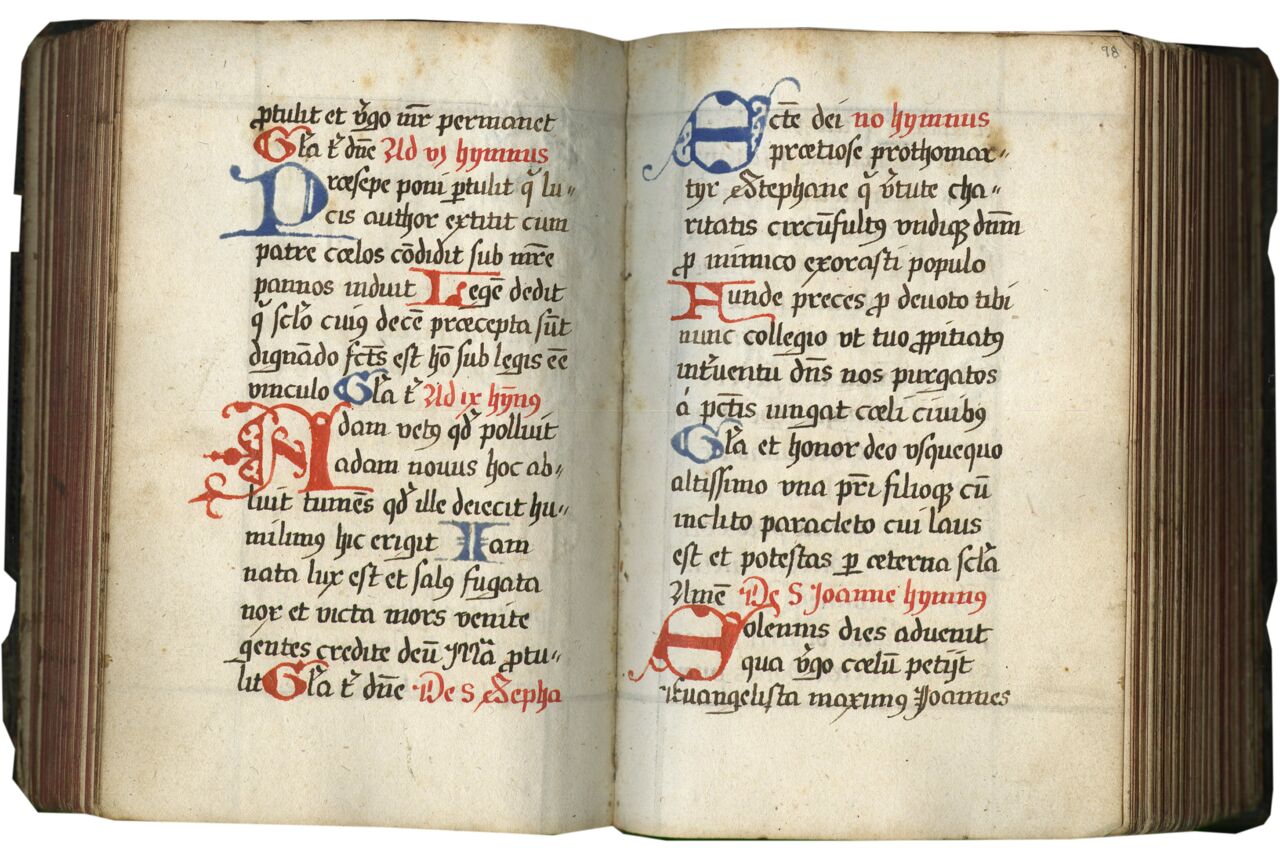 ꝓtulit et v̾go mr̄ permanet
Gl̾a t̾ dn̄e Ad vj hymnus
Præsepe poni ꝑtulit q̾ lu〃
cis author extitit cum
patre cœlos cōdidit sub mr̄e
pannos induit Legē dedit
q̾ scl̾o cuiꝰ decē præcepta sūt
dignādo fct̄s est hō sub legis eē
vinculo Gl̾a t̾ Ad ix hȳnꝰ
Adam vetꝰ qd̾ polluit
adam novus hoc ab〃
luit tumēs qd̾ ille deiecit hu〃
milimꝰ hic erigit Iam
nata lux est et salꝰ fugata
nox et victa mors venite
gentes credite deū Mr̄a ꝓtu〃
lit Gl̾a t̾ dn̄e De S Stepha
98
Sct̄e dei no hymnus
prætiose prothomar〃
tyr Stephane q̾ v̾tute cha〃
ritatis circūfultꝰ vndiqꝫ dnm̄
ꝓ inimico exorasti populo
Funde preces ꝓ devoto tibi
nunc collegio vt tuo ꝓpitiatꝰ
int̾uentu dn̄s nos purgatos
á pct̄is iungat cœli civibꝰ
Gl̾a et honor deo vsquequo
altissimo vna pr̄i filioqꝫ cū
inclito paracleto cui laus
est et potestas ꝑ æterna scl̾a
Amē De S Joanne hymnꝰ
Solennis dies advenit
qua v̾go cœlū petijt
Euangelista maximꝰ Joannes